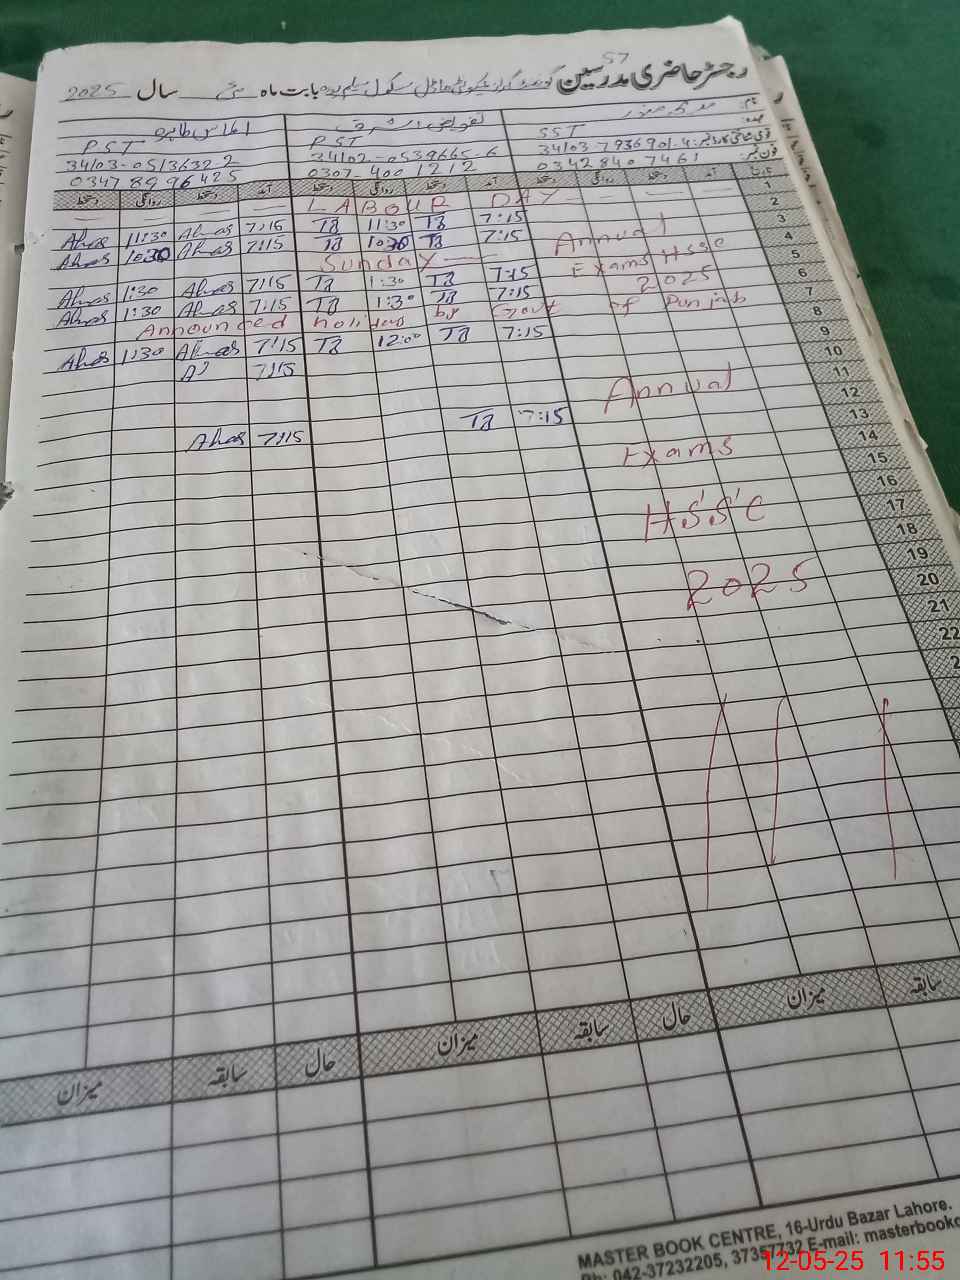 57
رجسٹر حاضری مدرسین گورنمنٹ گرلز کمیونٹی ماڈل سکول سلیم پورہ بابت ماہ مئی سال 2025
نام:
SST PST PST
قومی شناختی کارڈ نمبر: 34103-7936901-4 34102-0539665-6 34103-0513632-2
فون نمبر: 0342 840 7461 0307-400 1212 0347 89 96 425
تاریخ آمد دستخط روانگی دستخط آمد دستخط روانگی دستخط آمد دستخط روانگی دستخط
1 LABOUR DAY
2 7:15 TB 11:30 TB 7:15 Ahas 11:30 Ahas
3 Annual 7:15 TB 10:30 TB 7:15 Ahas 10:30 Ahas
4 Exams HSSC Sunday
5 2025 7:15 TB 1:30 TB 7:15 Ahas 1:30 Ahas
6 7:15 TB 1:30 TB 7:15 Ahas 1:30 Ahas
7 Announced holidays by Govt of Punjab
8 7:15 TB 12:00 TB 7:15 Ahas 1:30 Ahas
9 7:15
10 Annual
11 7:15 TB
12 7:15 Ahas
13 Exams
14
15 HSSC
16
17 2025
18
19
20
21
22
سابقہ میزان حال سابقہ میزان حال سابقہ میزان
MASTER BOOK CENTRE, 16-Urdu Bazar Lahore.
Ph: 042-37232205, 37357732 E-mail: masterbook
12-05-25 11:55